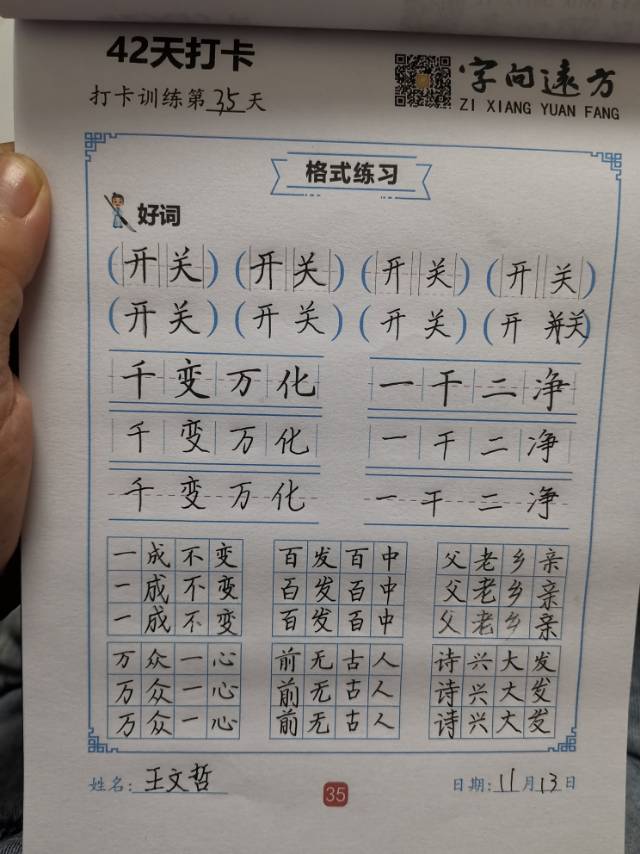 42天打卡
打卡训练第35天
字向远方
ZI XIANG YUAN FANG
格式练习
好词
(开关) (开关) (开关) (开关)
(开关) (开关) (开关) (开 关)
千变万化 一干二净
千变万化 一干二净
千变万化 一干二净
一成不变 百发百中 父老乡亲
一成不变 百发百中 父老乡亲
一成不变 百发百中 父老乡亲
万众一心 前无古人 诗兴大发
万众一心 前无古人 诗兴大发
万众一心 前无古人 诗兴大发
姓名:王文哲 35 日期:11月13日